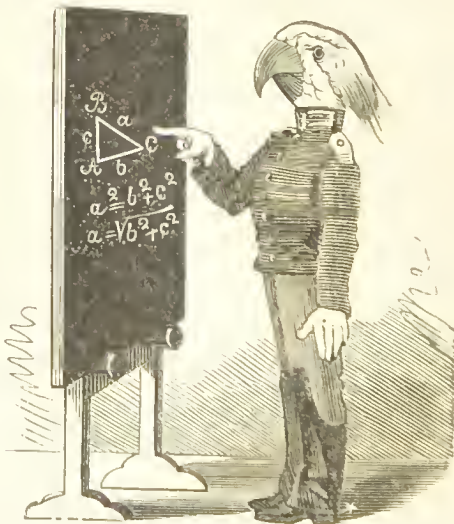 B
a
c
C
A
b
a²=b²+c²
a=√b²+c²